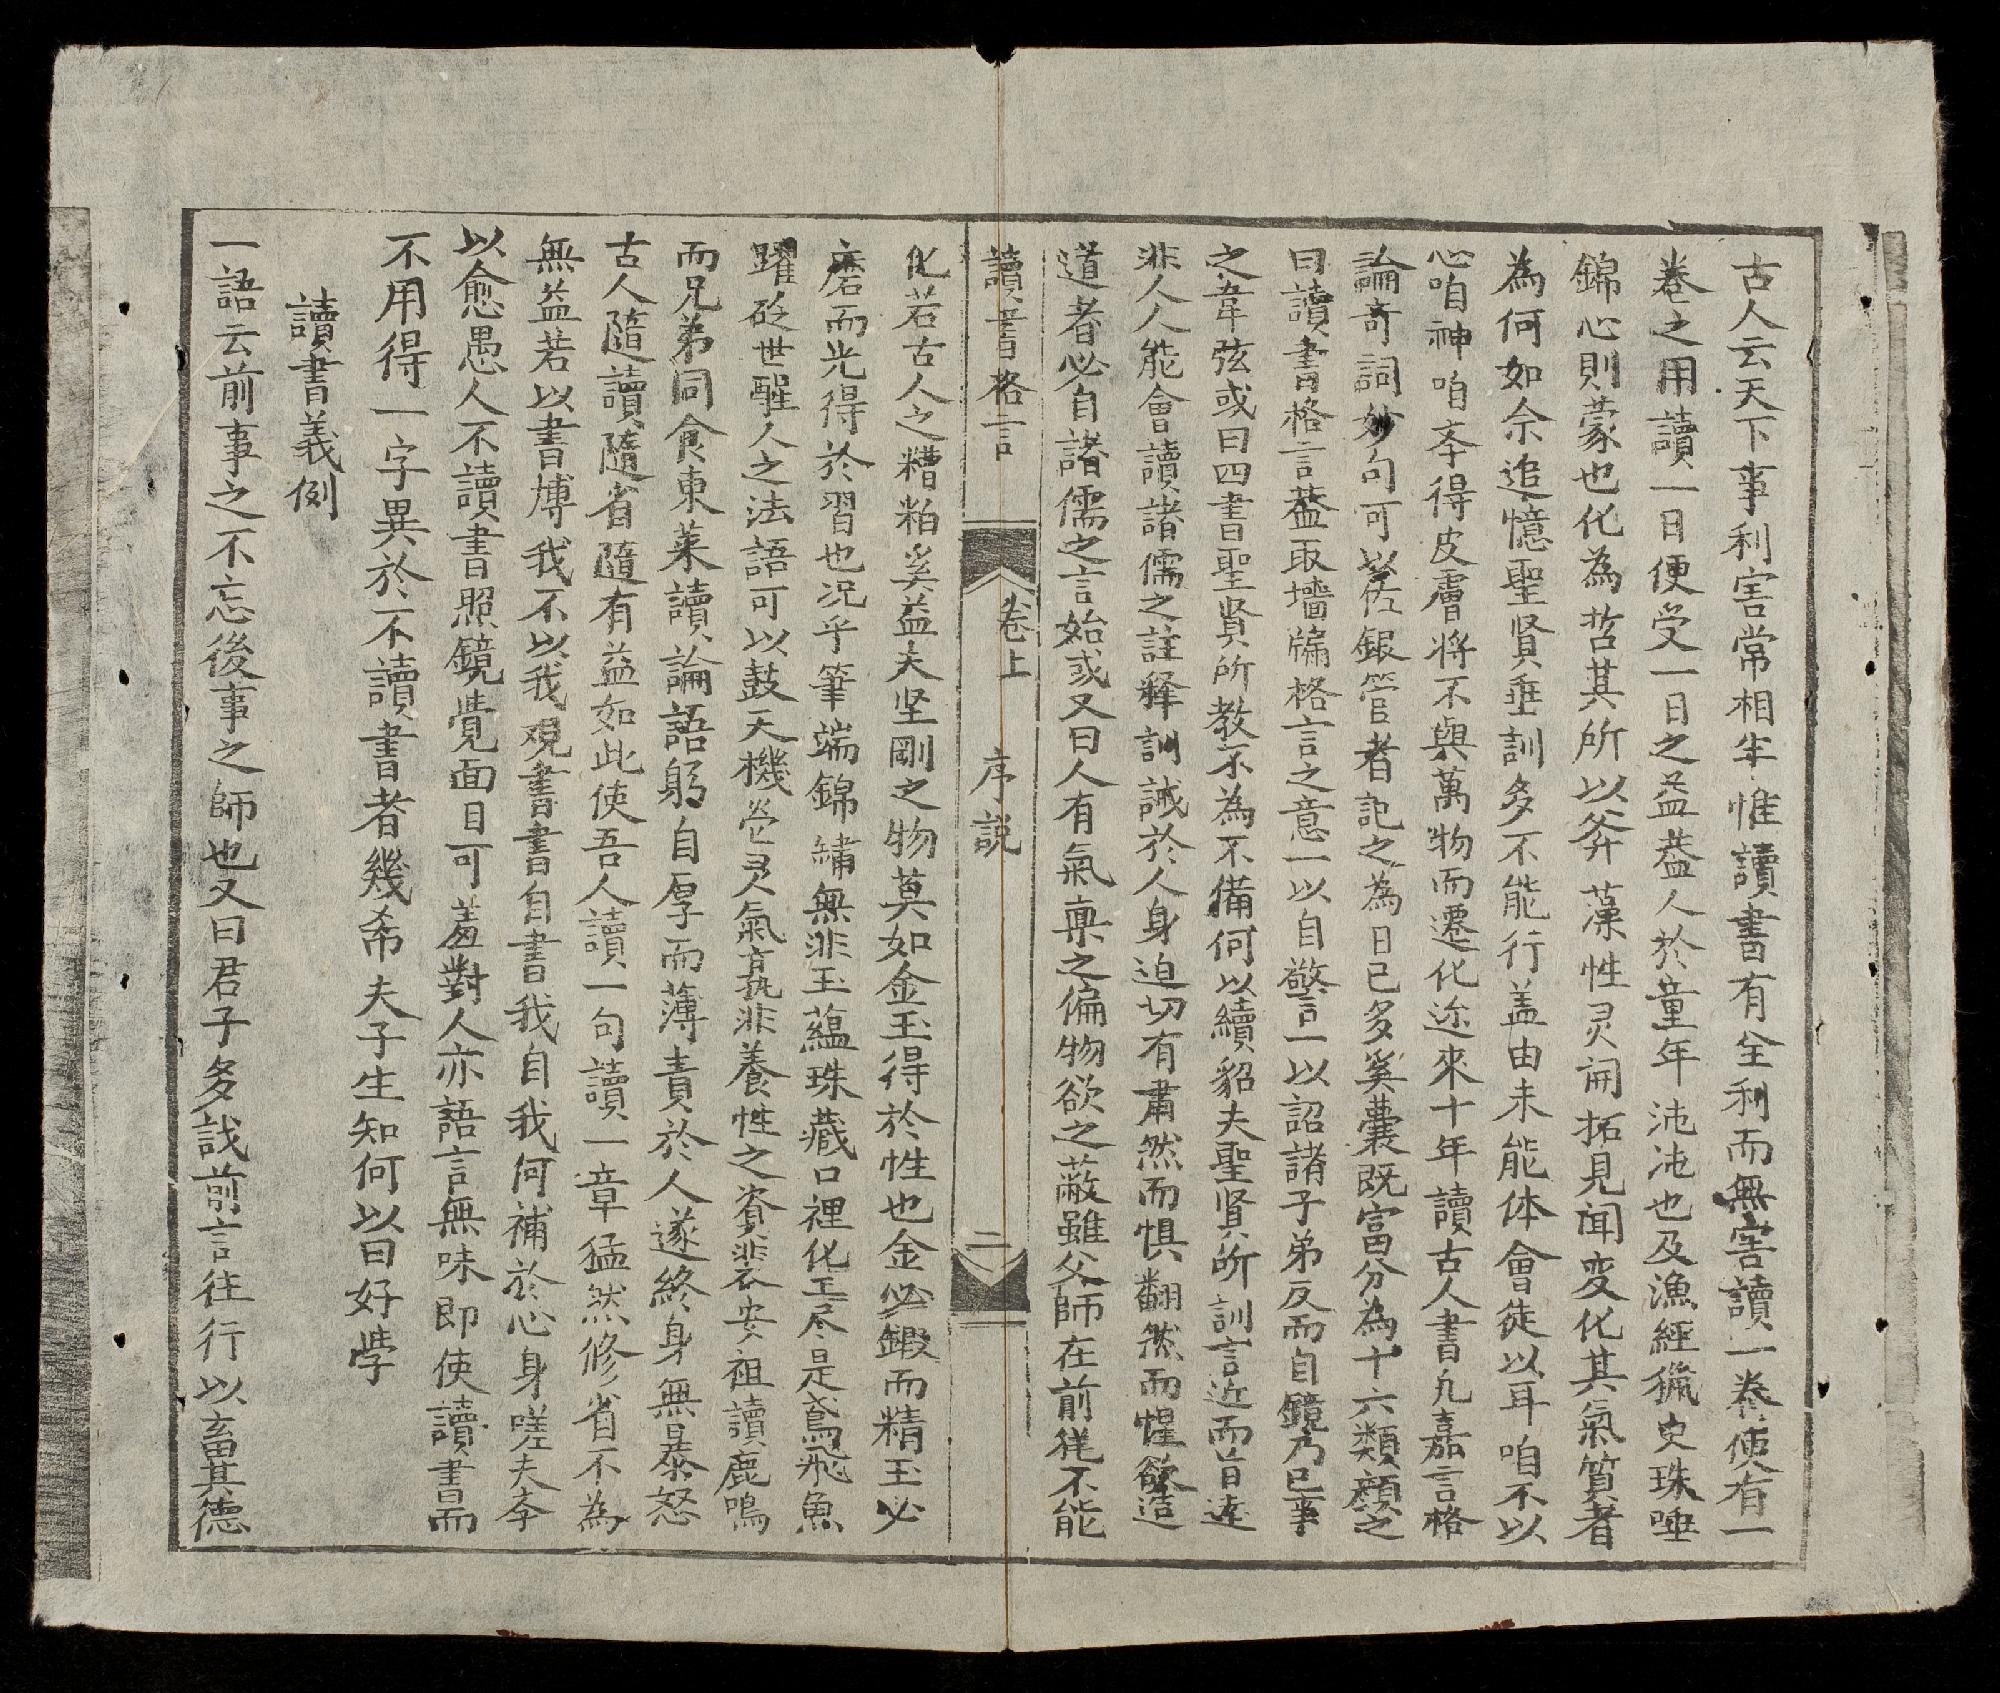 古人云天下事利害常相半惟讀書有全利而無害讀一卷使有一
卷之用讀一日便受一日之益蓋人於童年沌沌也及漁經獵史珠唾
錦心則蒙也化為哲其所以奔藻性灵闹拓見闻変化其氣質者
為何如余追憶聖賢垂訓多不能行盖由未能体會徒以耳咱不以
心咱神咱夲得皮膚将不與萬物而遷化迩來十年讀古人書凢嘉言格
論奇詞妙句可以佐銀管者記之為日已多奚囊既富分為十六類顔之
曰讀書格言蓋取墻牖格言之意一以自警一以詔諸子弟反而自鏡乃已事
之韋弦或曰四書聖賢所教不為不備何以續貂夫聖賢所訓言近而旨逺
非人人能會讀諸儒之註釋訓誡於人身迫切有肅然而惧翻然而惺欲造
道者必自諸儒之言始或又曰人有氣稟之偏物欲之蔽雖父師在前㹠不能
讀書格言 卷上 序説 二
化若古人之糟粕奚益夫坚剛之物莫如金玉得於性也金必鍛而精玉必
磨而光得於習也况乎筆端錦繡無非玉蘊珠藏口裡化工尽是鳶飛魚
躍砭世醒人之法語可以鼓天機壱灵氣孰非養性之資裴安祖讀鹿鳴
而兄弟同食東萊讀論語躬自厚而薄責於人遂終身無暴怒
古人隨讀隨省隨有益如此使吾人讀一句讀一章猛然修省不為
無益若以書博我不以我观書書自書我自我何補於心身嗟夫夲
以愈愚人不讀書照鏡覺面目可羞對人亦語言無味即使讀書而
不用得一字異於不讀書者幾希夫子生知何以曰好學
讀書義例
一語云前事之不忘後事之師也又曰君子多識前言往行以畜其德